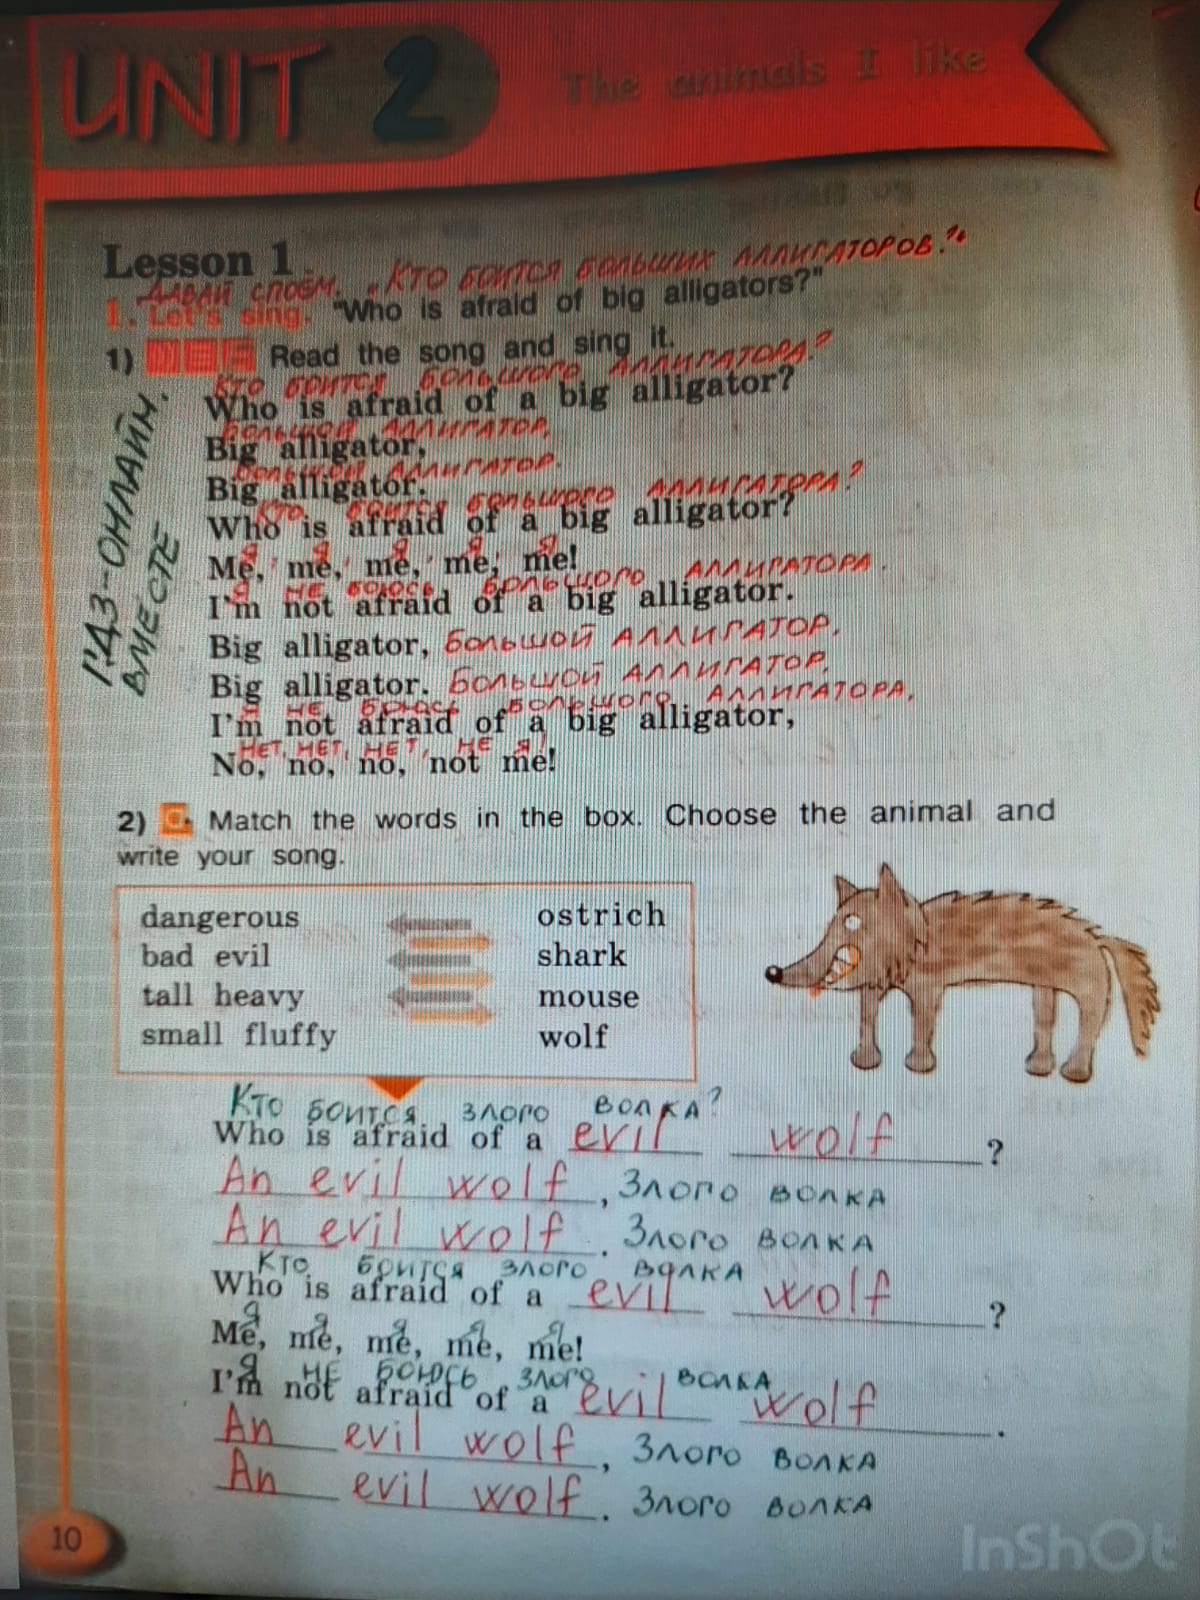 UNIT 2 The animals I like
Lesson 1
ДАВАЙ СПОЁМ. "КТО БОИТСЯ БОЛЬШИХ АЛЛИГАТОРОВ."
1. Let's sing. "Who is afraid of big alligators?"
1) Read the song and sing it.
КТО БОИТСЯ БОЛЬШОГО АЛЛИГАТОРА?
Who is afraid of a big alligator?
БОЛЬШОЙ АЛЛИГАТОР,
Big alligator,
БОЛЬШОЙ АЛЛИГАТОР.
Big alligator.
КТО БОИТСЯ БОЛЬШОГО АЛЛИГАТОРА?
Who is afraid of a big alligator?
Я Я Я Я Я
Me, me, me, me, me!
Я НЕ БОЮСЬ БОЛЬШОГО АЛЛИГАТОРА.
I'm not afraid of a big alligator.
Big alligator, БОЛЬШОЙ АЛЛИГАТОР,
Big alligator. БОЛЬШОЙ АЛЛИГАТОР.
Я НЕ БОЮСЬ БОЛЬШОГО АЛЛИГАТОРА,
I'm not afraid of a big alligator,
НЕТ, НЕТ, НЕТ, НЕ Я!
No, no, no, not me!
ГДЗ-ОНЛАЙН.
ВМЕСТЕ
2) Match the words in the box. Choose the animal and
write your song.
dangerous ostrich
bad evil shark
tall heavy mouse
small fluffy wolf
КТО БОИТСЯ ЗЛОГО ВОЛКА?
Who is afraid of a evil wolf ?
An evil wolf , ЗЛОГО ВОЛКА
An evil wolf . ЗЛОГО ВОЛКА
КТО БОИТСЯ ЗЛОГО ВОЛКА
Who is afraid of a evil wolf ?
Я Я Я Я Я
Me, me, me, me, me!
Я НЕ БОЮСЬ ЗЛОГО ВОЛКА
I'm not afraid of a evil wolf .
An evil wolf , ЗЛОГО ВОЛКА
An evil wolf . ЗЛОГО ВОЛКА
10
InShOt